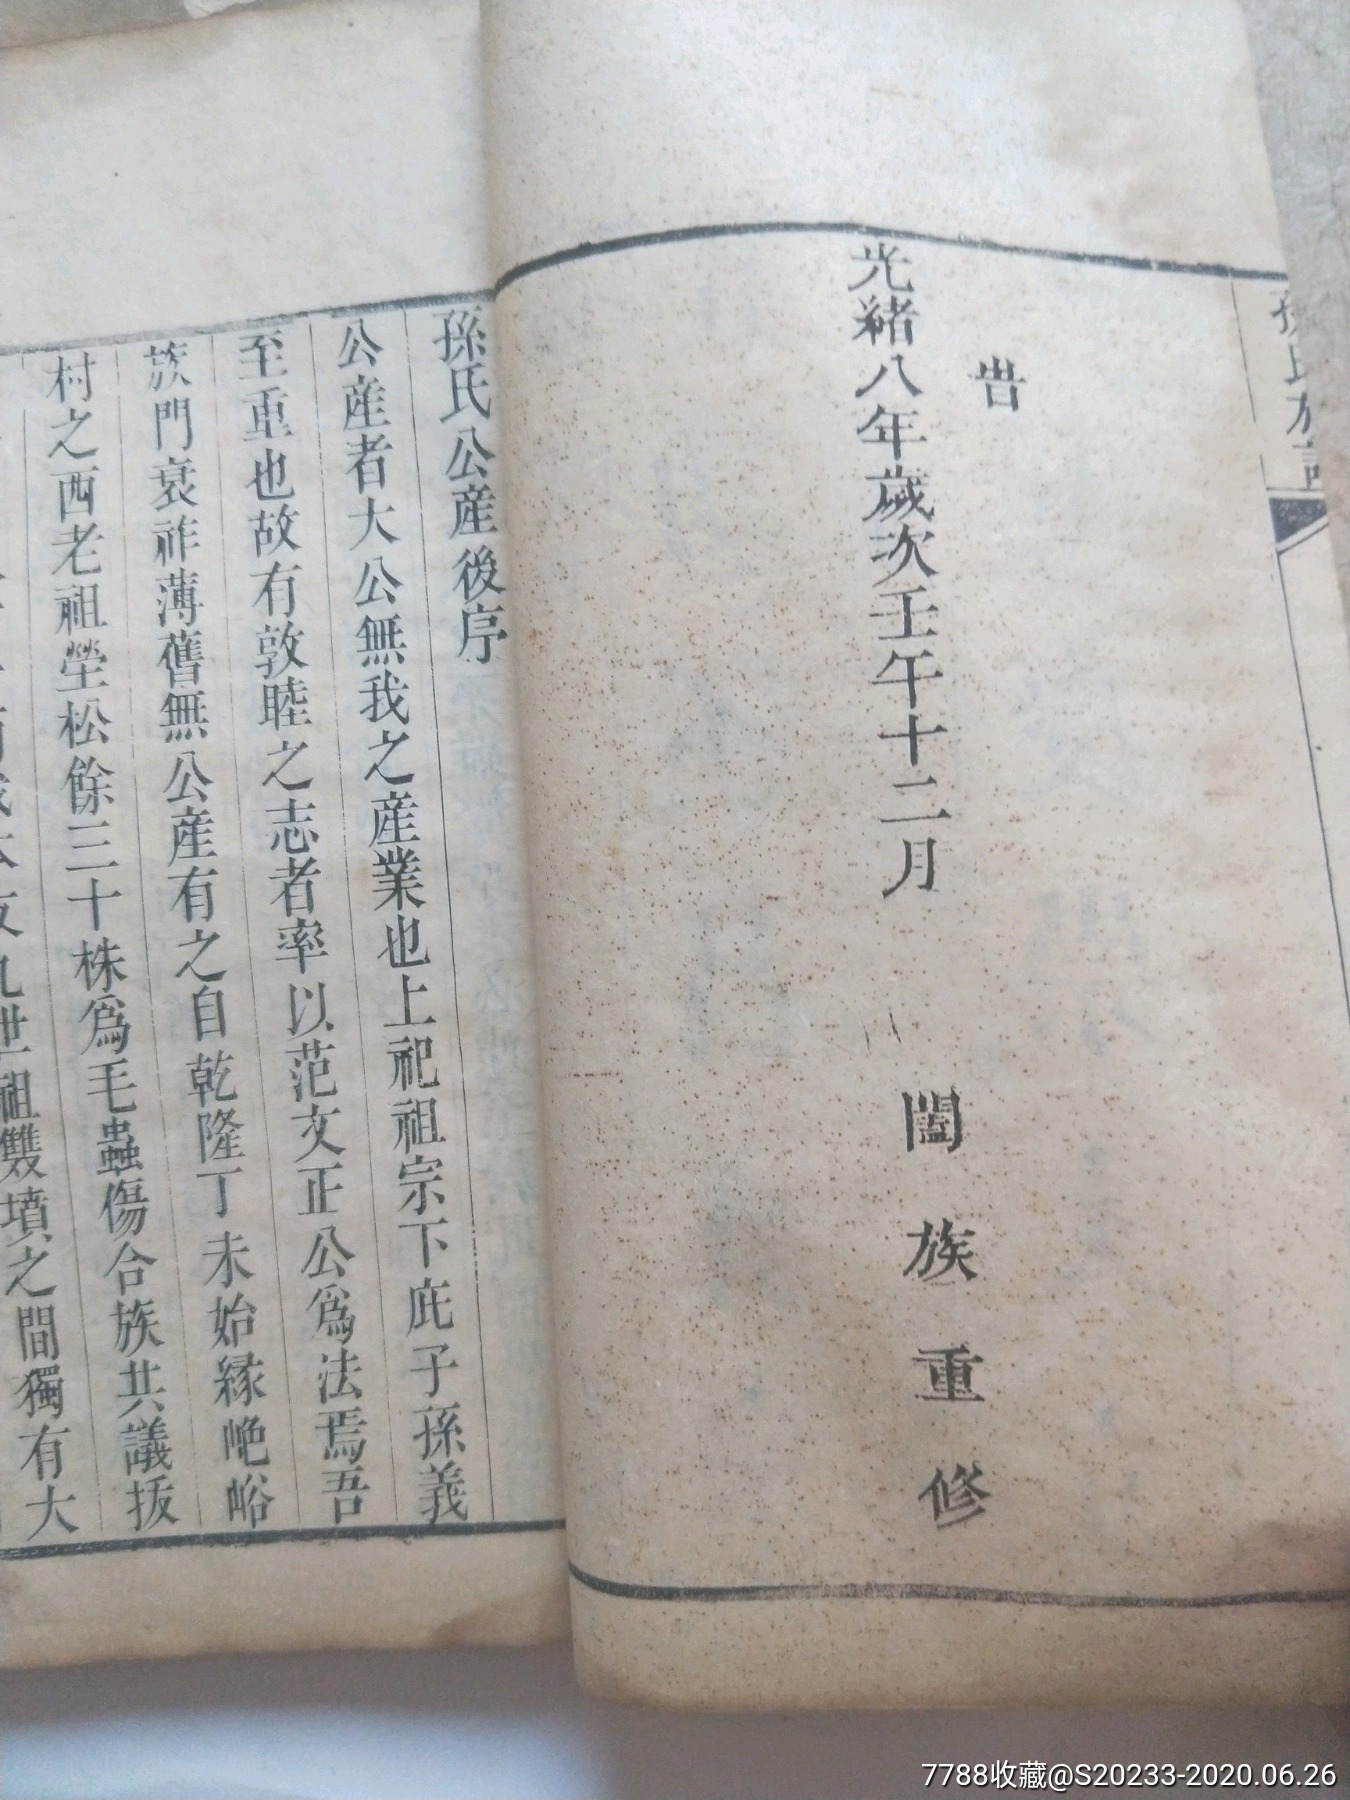 孫氏族譜
旹
光緒八年歲次壬午十二月 闔族重修
孫氏公產後序
公產者大公無我之產業也上祀祖宗下庇子孫義
至重也故有敦睦之志者率以范文正公爲法焉吾
族門衰祚薄舊無公產有之自乾隆丁未始緣岊峪
村之西老祖塋松餘三十株爲毛蟲傷合族共議拔
九世祖雙墳之間獨有大
7788收藏@S20233-2020.06.26